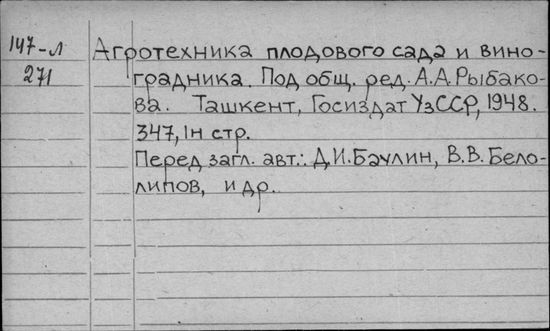 147-Л Агротехника плодового сада и вино-
271 градника. Под общ. ред. А.А. Рыбако-
ва. Ташкент, Госиздат УзССР, 1948.
347, 1н стр.
Перед загл. авт.: Д.И. Баулин, В.В. Бело-
липов, и др.